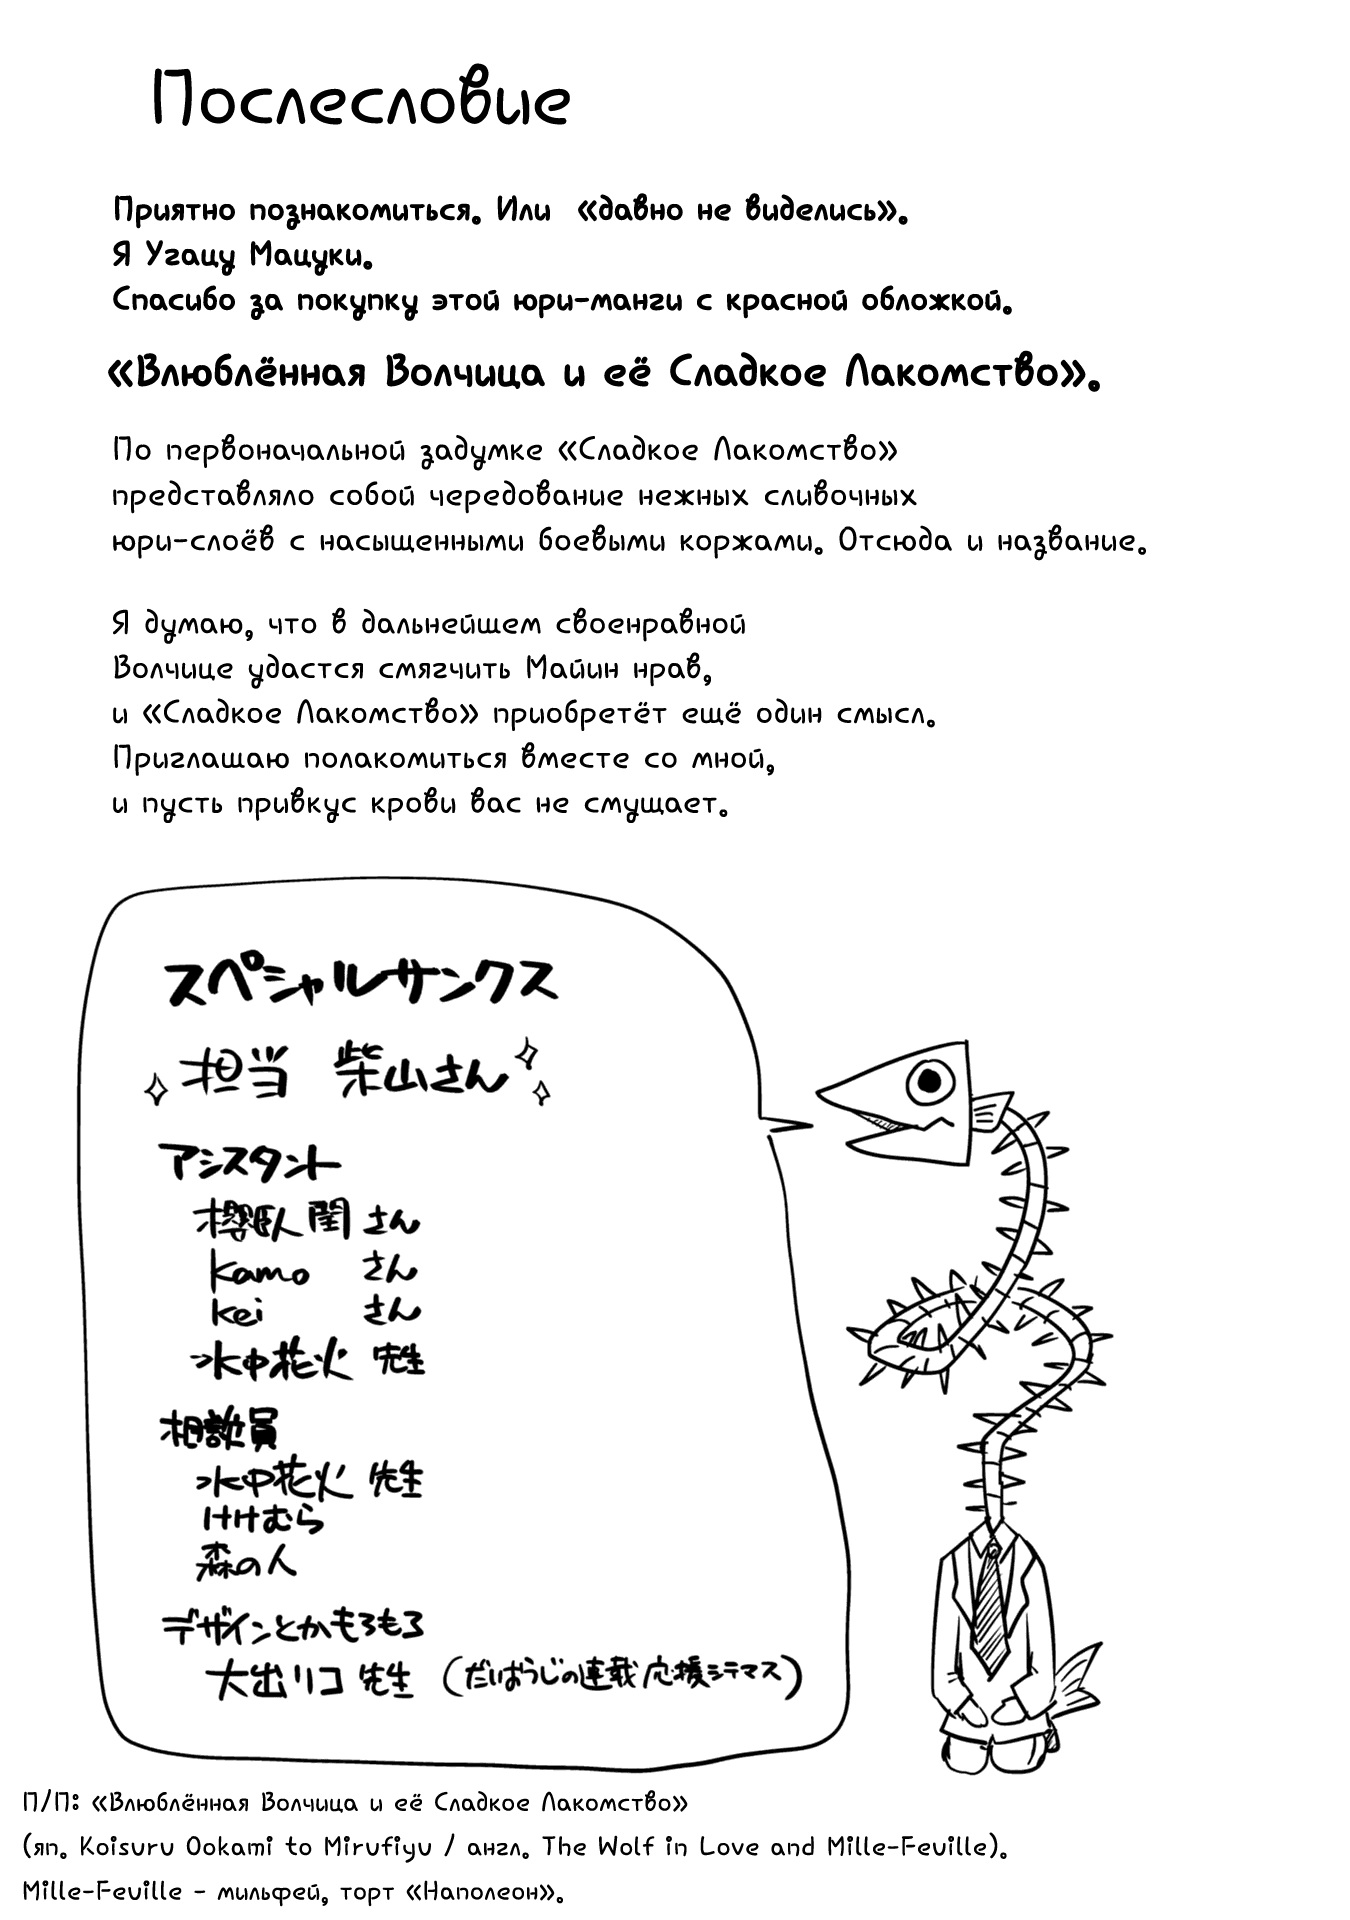 Послесловие
Приятно познакомиться. Или «давно не виделись».
Я Угацу Мацуки.
Спасибо за покупку этой юри-манги с красной обложкой.
«Влюблённая Волчица и её Сладкое Лакомство».
По первоначальной задумке «Сладкое Лакомство»
представляло собой чередование нежных сливочных
юри-слоёв с насыщенными боевыми коржами. Отсюда и название.
Я думаю, что в дальнейшем своенравной
Волчице удастся смягчить Майин нрав,
и «Сладкое Лакомство» приобретёт ещё один смысл.
Приглашаю полакомиться вместе со мной,
и пусть привкус крови вас не смущает.
スペシャルサンクス
担当 柴山さん
アシスタント
櫻臥 閏 さん
kamo さん
kei さん
水中花火 先生
相談員
水中花火 先生
けけむら
森の人
デザインとかもろもろ
大出リコ 先生 (だいぼうじの連載応援シテマス)
П/П: «Влюблённая Волчица и её Сладкое Лакомство»
(яп. Koisuru Ookami to Mirufiyu / англ. The Wolf in Love and Mille-Feuille).
Mille-Feuille - мильфей, торт «Наполеон».